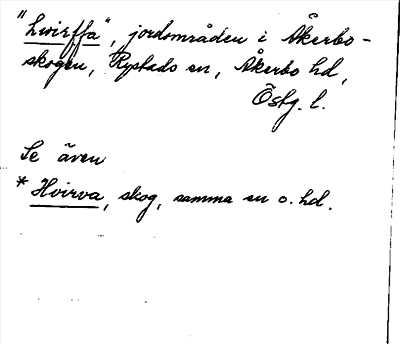 "Hvirffa", jordområden i Åkerbo-
skogen, Rystads sn, Åkerbo hd,
Östg. l.
Se även
* Hvirva, skog, samma sn o. hd.